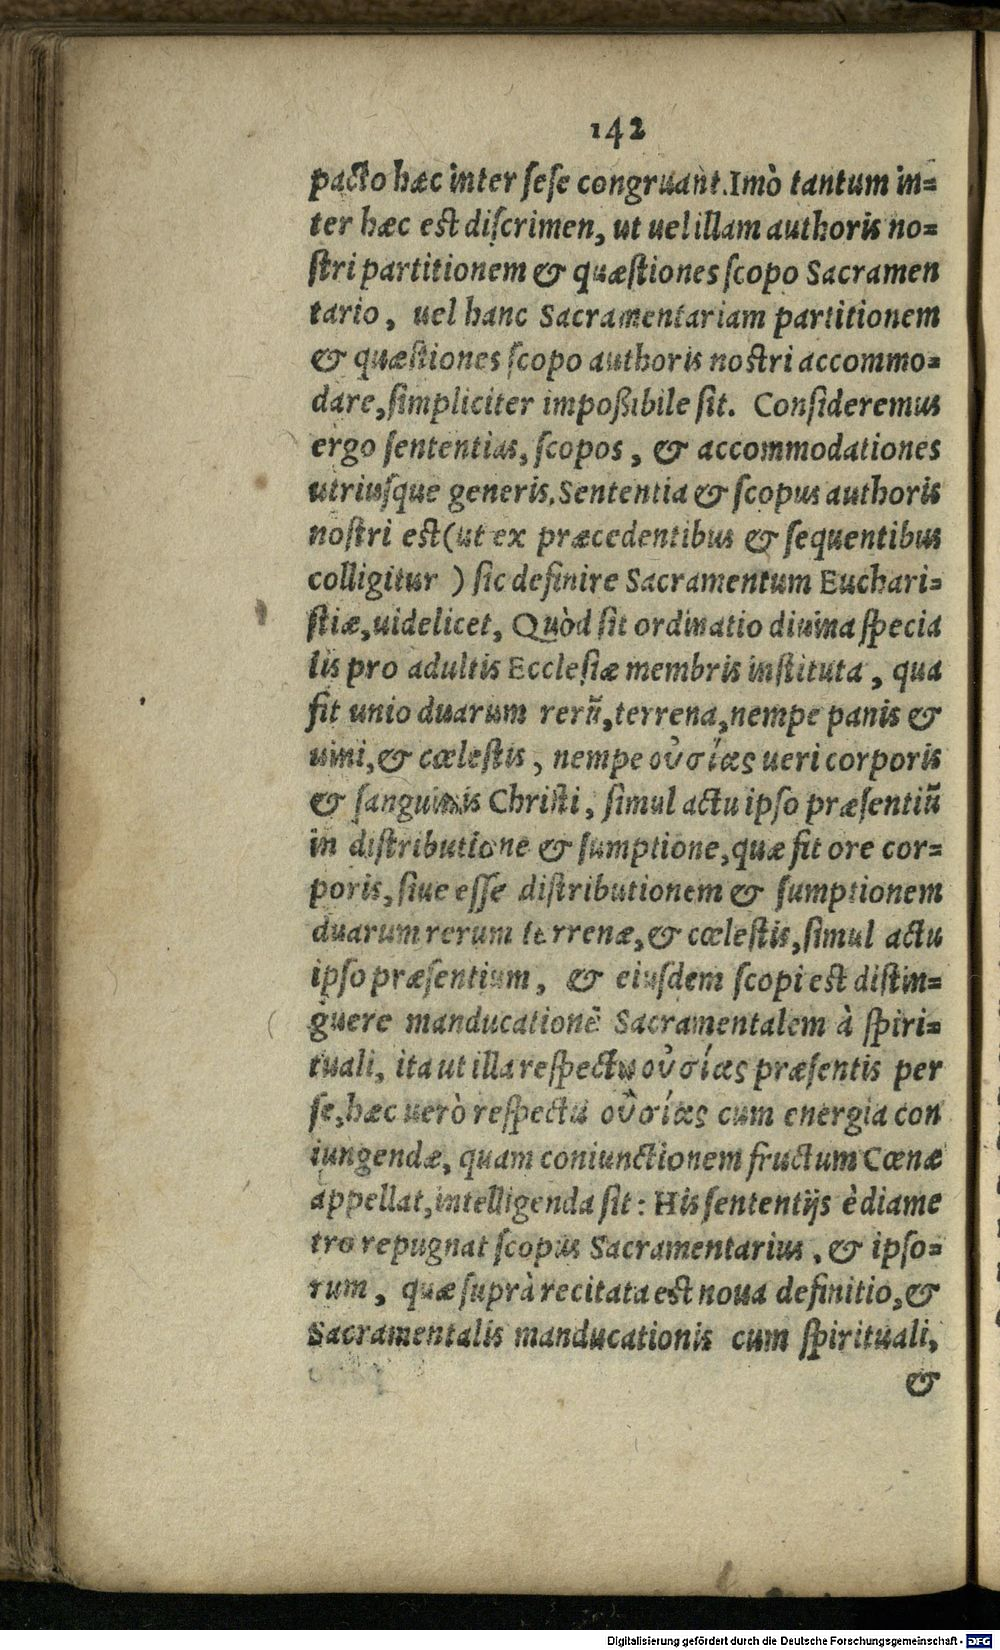 142
pacto hæc inter ſeſe congruant. Imò tantum in=
ter hæc eſt diſcrimen, ut uel illam authoris no=
ſtri partitionem & quæſtiones ſcopo Sacramen
tario, uel hanc Sacramentariam partitionem
& quæſtiones ſcopo authoris noſtri accommo=
dare, ſimpliciter impoßibile ſit. Conſideremus
ergo ſententias, ſcopos, & accommodationes
utriuſque generis. Sententia & ſcopus authoris
noſtri eſt (ut ex præcedentibus & ſequentibus
colligitur ) ſic definire Sacramentum Euchari=
ſtiæ, uidelicet, Quòd ſit ordinatio diuina ſpecia
lis pro adultis Eccleſiæ membris inſtituta, qua
fit unio duarum rerũ, terrena, nempe panis &
uini, & cœleſtis, nempe οὐσίας ueri corporis
& ſanguinis Chriſti, ſimul actu ipſo præſentiũ
in diſtributione & ſumptione, quæ fit ore cor=
poris, ſiue eſſe diſtributionem & ſumptionem
duarum rerum terrenæ, & cœleſtis, ſimul actu
ipſo præſentium, & eiuſdem ſcopi eſt diſtin=
guere manducationẽ Sacramentalem à ſpiri=
tuali, ita ut illa reſpectu οὐσίας præſentis per
ſe, hæc uerò reſpectu οὐσίας cum energia con
iungendæ, quam coniunctionem fructum Cœnæ
appellat, intelligenda ſit: His ſententijs è diame
tro repugnat ſcopus Sacramentarius, & ipſo=
rum, quæ ſuprà recitata eſt noua definitio, &
Sacramentalis manducationis cum ſpirituali,
&
Digitalisierung gefördert durch die Deutsche Forschungsgemeinschaft - DFG